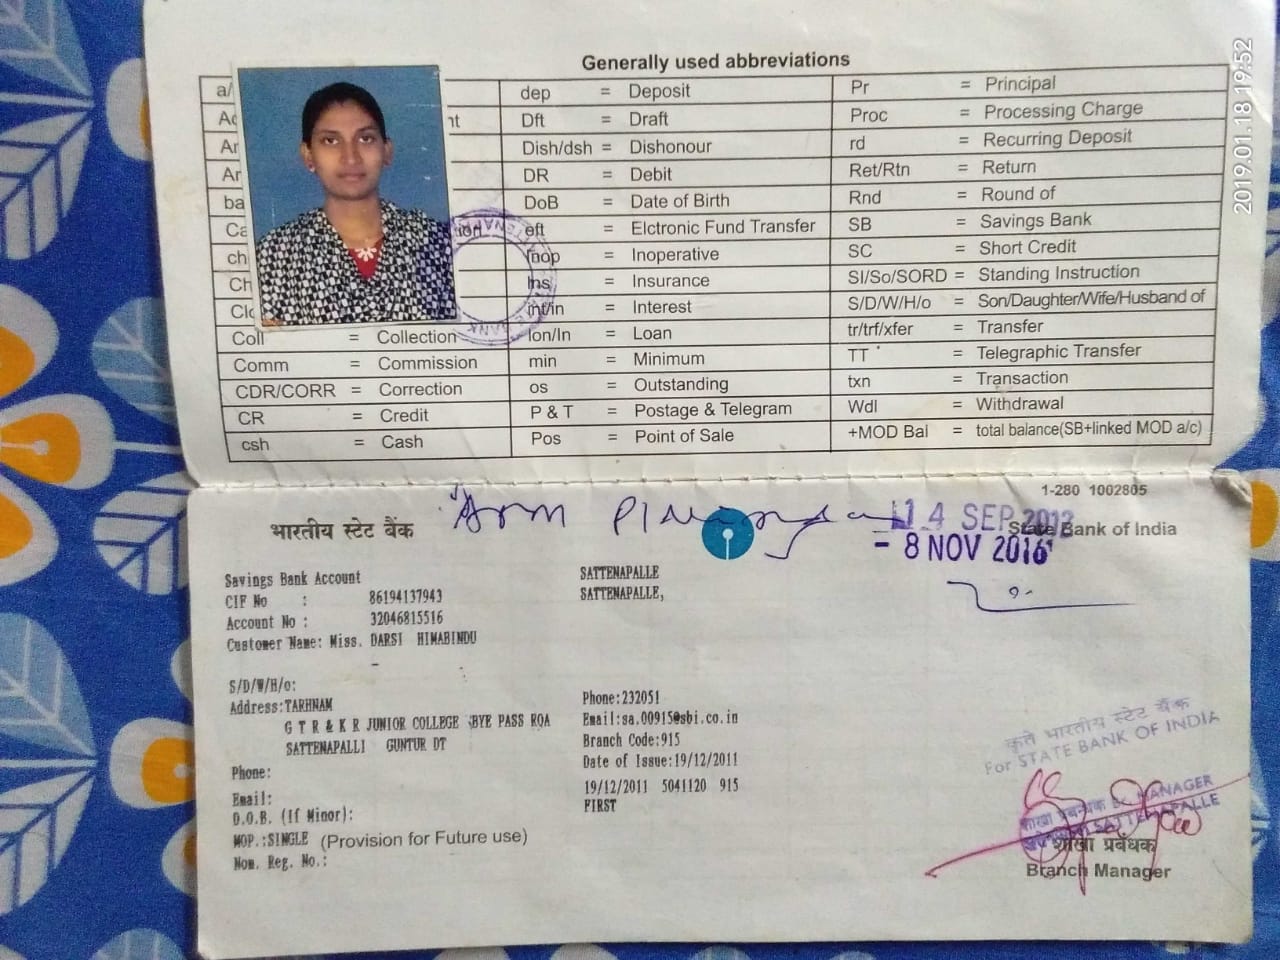 Generally used abbreviations
dep = Deposit
Dft = Draft
Dish/dsh = Dishonour
DR = Debit
DoB = Date of Birth
eft = Elctronic Fund Transfer
Inop = Inoperative
Ins = Insurance
int/in = Interest
Coll = Collection
lon/ln = Loan
Comm = Commission
min = Minimum
CDR/CORR = Correction
os = Outstanding
CR = Credit
P & T = Postage & Telegram
csh = Cash
Pos = Point of Sale
Pr = Principal
Proc = Processing Charge
rd = Recurring Deposit
Ret/Rtn = Return
Rnd = Round of
SB = Savings Bank
SC = Short Credit
SI/So/SORD = Standing Instruction
S/D/W/H/o = Son/Daughter/Wife/Husband of
tr/trf/xfer = Transfer
TT = Telegraphic Transfer
txn = Transaction
Wdl = Withdrawal
+MOD Bal = total balance(SB+linked MOD a/c)
2019.01.18 19:52
1-280 1002805
भारतीय स्टेट बैंक
14 SEP
State Bank of India
- 8 NOV 2016
Savings Bank Account
CIF No : 86194137943
Account No : 32046815516
Customer Name: Miss. DARSI HIMABINDU
S/D/W/H/o:
Address:TARHNAM
G T R & K R JUNIOR COLLEGE BYE PASS ROA
SATTENAPALLI GUNTUR DT
Phone:
Email:
D.O.B. (If Minor):
MOP.:SINGLE (Provision for Future use)
Nom. Reg. No.:
SATTENAPALLE
SATTENAPALLE,
Phone:232051
Email:sa.00915@sbi.co.in
Branch Code:915
Date of Issue:19/12/2011
19/12/2011 5041120 915
FIRST
कृते भारतीय स्टेट बैंक
For STATE BANK OF INDIA
शाखा प्रबन्धक Br. MANAGER
SATTENAPALLE
शाखा प्रबंधक
Branch Manager